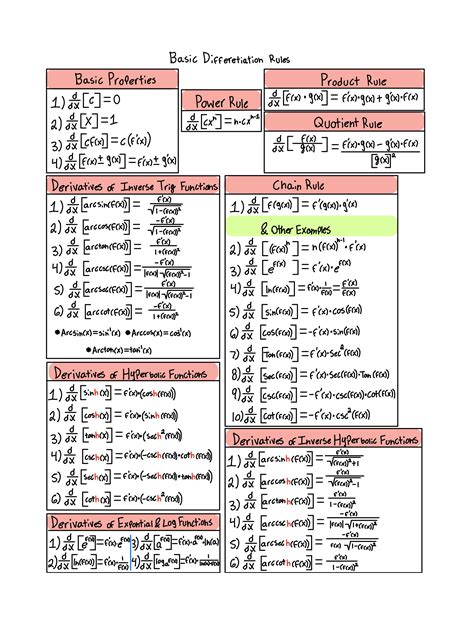 Basic Differetiation Rules
Basic Properties
1) d/dx [c] = 0
2) d/dx [x] = 1
3) d/dx [cf(x)] = c(f'(x))
4) d/dx [f(x) ± g(x)] = f'(x) ± g'(x)
Power Rule
d/dx [cxⁿ] = n·cxⁿ⁻¹
Product Rule
d/dx [f(x)·g(x)] = f'(x)·g(x) + g'(x)·f(x)
Quotient Rule
d/dx [f(x)/g(x)] = (f'(x)·g(x) - g'(x)·f(x))/[g(x)]²
Derivatives of Inverse Trig Functions
1) d/dx [arcsin(f(x))] = f'(x)/√(1-(f(x))²)
2) d/dx [arccos(f(x))] = -f'(x)/√(1-(f(x))²)
3) d/dx [arctan(f(x))] = f'(x)/(1+(f(x))²)
4) d/dx [arccsc(f(x))] = -f'(x)/(|f(x)|·√((f(x))²-1))
5) d/dx [arcsec(f(x))] = f'(x)/(|f(x)|·√((f(x))²-1))
6) d/dx [arccot(f(x))] = -f'(x)/(1+(f(x))²)
*Arcsin(x)=sin⁻¹(x) *Arccos(x)=cos⁻¹(x)
*Arctan(x)=tan⁻¹(x)
Chain Rule
1) d/dx [f(g(x))] = f'(g(x))·g'(x)
& Other Examples
2) d/dx [(f(x))ⁿ] = n(f(x))ⁿ⁻¹·f'(x)
3) d/dx [e^f(x)] = f'(x)·e^f(x)
4) d/dx [ln(f(x))] = f'(x)·1/f(x) = f'(x)/f(x)
5) d/dx [sin(f(x))] = f'(x)·cos(f(x))
6) d/dx [cos(f(x))] = -f'(x)·sin(f(x))
7) d/dx [Tan(f(x))] = f'(x)·sec²(f(x))
8) d/dx [sec(f(x))] = f'(x)·sec(f(x))·Tan(f(x))
9) d/dx [csc(f(x))] = -f'(x)·csc(f(x))·cot(f(x))
10) d/dx [cot(f(x))] = -f'(x)·csc²(f(x))
Derivatives of Hyperbolic Functions
1) d/dx [sinh(x)] = f'(x)·(cosh(f(x)))
2) d/dx [cosh(x)] = f'(x)·(sinh(f(x)))
3) d/dx [tanh(x)] = f'(x)·(sech²(f(x)))
4) d/dx [csch(x)] = f'(x)·(-csch(f(x))·coth(f(x)))
5) d/dx [sech(x)] = f'(x)·(-sech(f(x))·tanh(f(x)))
6) d/dx [coth(x)] = f'(x)·(-csch²(f(x)))
Derivatives of Expontial & Log Functions
1) d/dx [e^f(x)] = f'(x)·e^f(x) 3) d/dx [a^f(x)] = f'(x)·a^f(x)·ln(a)
2) d/dx [ln(f(x))] = f'(x)·1/f(x) 4) d/dx [logₐf(x)] = f'(x)·
Derivatives of Inverse Hyperbolic Functions
1) d/dx [arcsinh(f(x))] = f'(x)/√((f(x))²+1)
2) d/dx [arccosh(f(x))] = f'(x)/√((f(x))²-1)
3) d/dx [arctanh(f(x))] = f'(x)/(1-(f(x))²)
4) d/dx [arccsch(f(x))] = -f'(x)/(|f(x)|·√(1+(f(x))²))
5) d/dx [arcsech(f(x))] = -f'(x)/(f(x)·√(1-(f(x))²))
6) d/dx [arccoth(f(x))] = f'(x)/(1-(f(x))²)